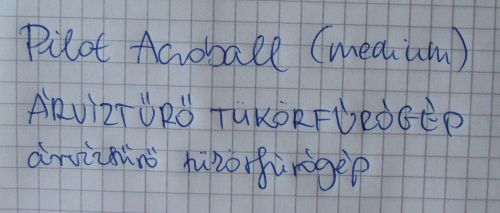 Pilot Acroball (medium)
ÁRVÍZTŰRŐ TÜKÖRFÚRÓGÉP
árvíztűrő tükörfúrógép